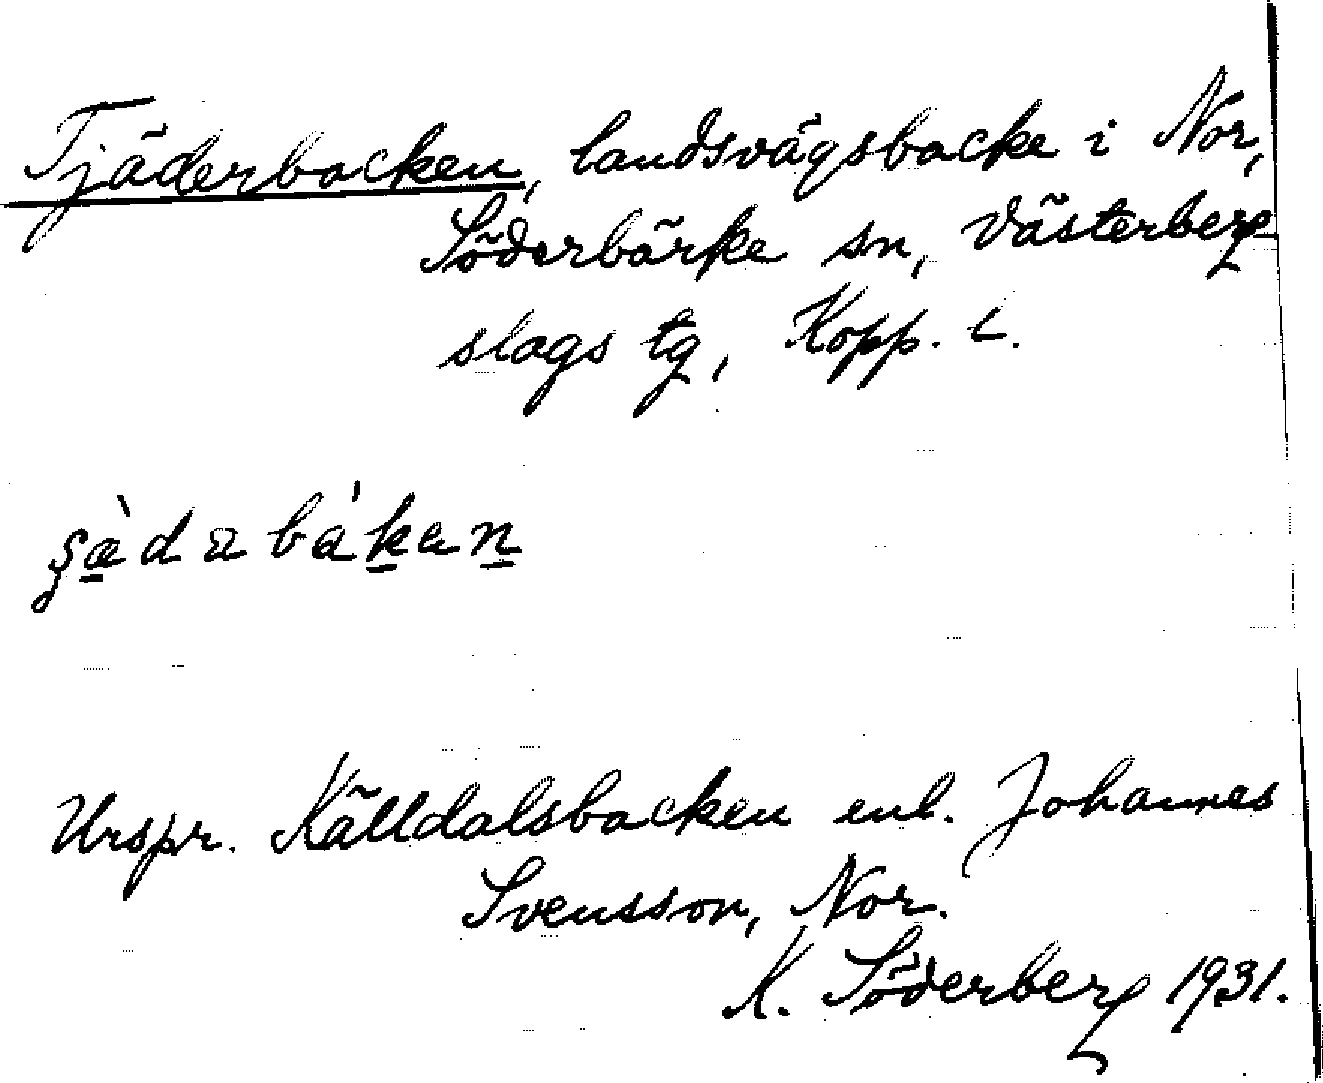 Tjäderbacken, landsvägsbacke i Nor,
Söderbärke sn, Västerberg
slags tg, Kopp. l.
şæ̀dabàkan
Urspr. Källdalsbacken enl. Johannes
Svensson, Nor.
K. Söderberg 1931.